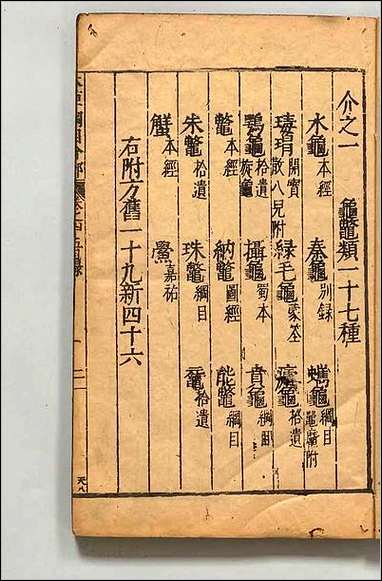 介之一　龜鱉類一十七種
水龜本經　秦龜別錄　蠵龜綱目鼊䗩附
瑇瑁開寶散八兒附　綠毛龜蒙筌　瘧龜拾遺
鶚龜拾遺旋龜　攝龜蜀本　賁龜綱目
鱉本經　納鱉圖經　能鱉綱目
朱鱉拾遺　珠鱉綱目　黿拾遺
蟹本經　鱟嘉祐
右附方舊一十九新四十六